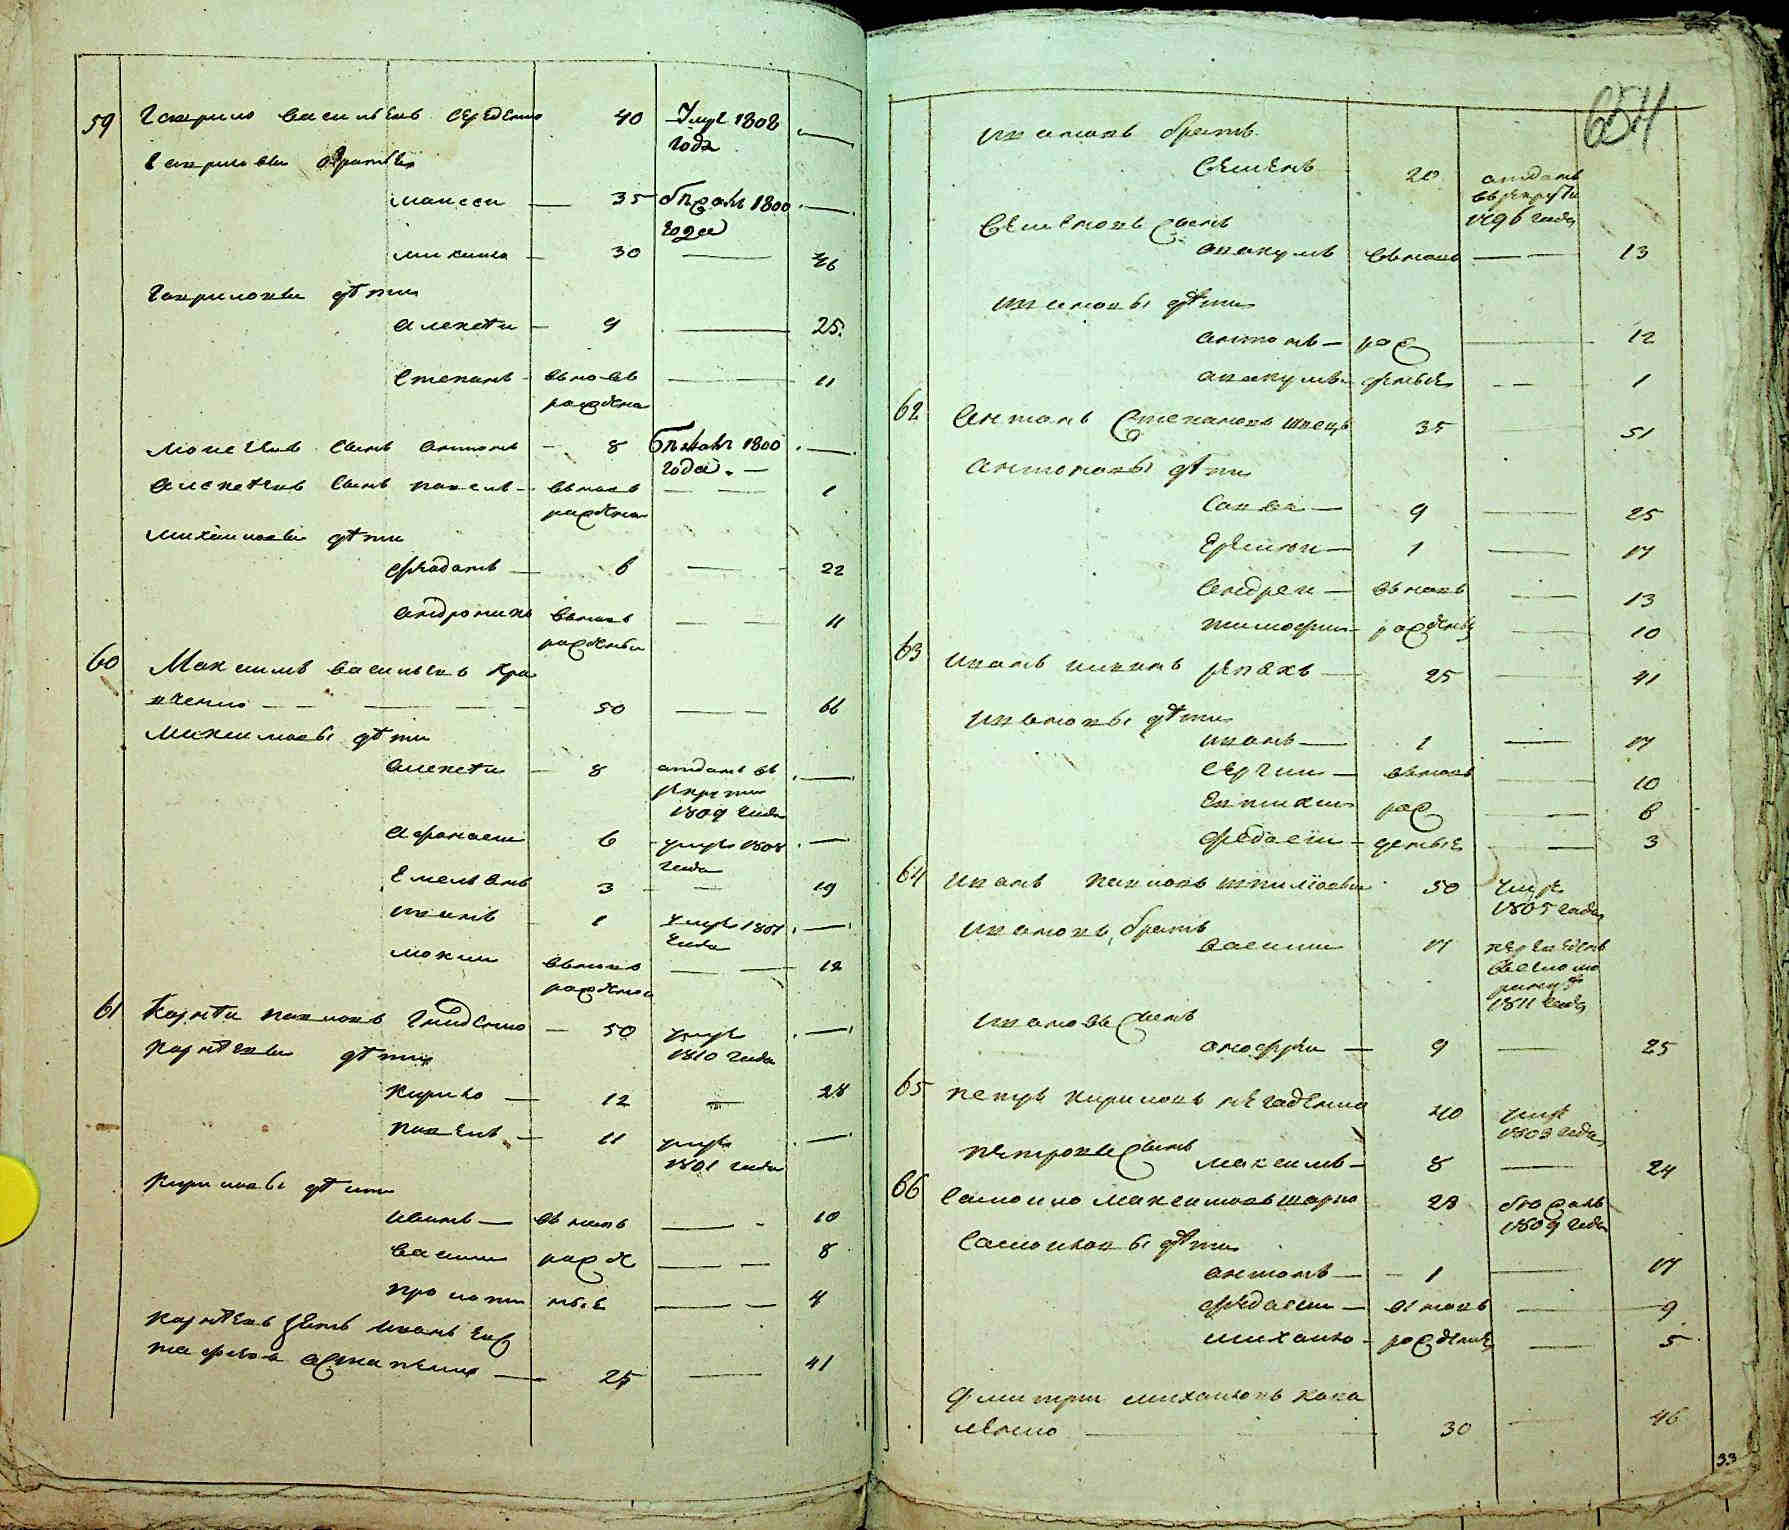 59 Гаврило Васильевъ Середенко 40 Умре 1808 года —
Гавриловы братья
Моисеи — 35 бѣжалъ 1800 года —
Микита — 30 — 46
Гавриловы дѣти
Алексѣи — 9 — 25
Степанъ — вновь рожденъ — 11
Моисѣевъ сынъ Антонъ — 8 бѣжалъ 1800 года —
Алексѣевъ сынъ Павелъ — вновь рожденъ — 1
Микитовы дѣти
Феодотъ — 6 — 22
Андроникъ вновь рожденъ — 11
60 Максимъ Васильевъ Кра
вченко — 50 — 66
Максимовы дѣти
Алексѣи — 8 отданъ въ рекруты 1809 года —
Афанасии 6 умре 1808 года —
Емельянъ 3 — 19
Иванъ 1 умре 1801 года —
Мокии вновь рожденъ — 12
61 Корнѣи Павловъ 50 умре 1810 года —
Корнѣевы дѣти
Кирило — 12 — 28
Павелъ — 11 умре 1801 года —
Кириловы дѣти
Иванъ — вновь — 10
Васили рожде — 8
Прокопи ные — 4
Корнѣевъ зять Иванъ
25 — 41
654
Ивановъ братъ
Семенъ 20 отданъ въ рекруты 1796 года
Семеновъ сынъ
Авакумъ вновь — 13
Ивановы дѣти
Антонъ — рож — 12
Авакумъ — деные — 1
62 Антонъ Степановъ Швецъ 35 — 51
Антоновы дѣти
Савва — 9 — 25
Ермола — 1 — 17
Андреи — вновь — 13
Тимофеи — рожденые — 10
63 Иванъ Ивановъ Репехъ — 25 — 41
Ивановы дѣти
Иванъ — 1 — 17
Сергии — вновь — 10
Евтихии рож — 6
Федосии — деные — 3
64 Иванъ Павловъ 50 умре 1805 года
Ивановъ братъ
Василии 17 1811 года
Ивановъ сынъ
Онофрѣи — 9 — 25
65 Петръ Кириловъ Негаденко 40 умре 1803 года
Петровъ сынъ
Максимъ — 8 — 24
66 Самоило Максимовъ Шарко 23 бѣжалъ 1809 года
Самоиловы дѣти
Антонъ — 1 — 17
Федосии — вновь — 9
Михаило — рожденые — 5
Дмитри Михаиловъ Кова
ленко — 30 — 46
33